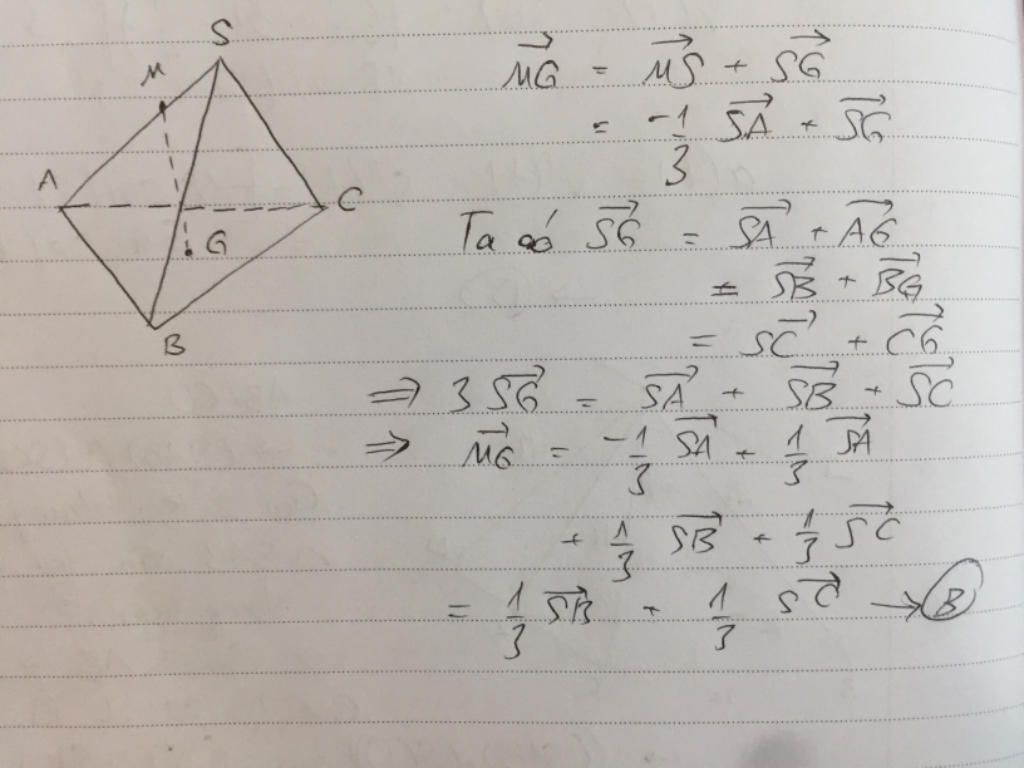 S
M
A
C
G
B
$\overrightarrow{MG} = \overrightarrow{MS} + \overrightarrow{SG}$
$= \frac{-1}{3} \overrightarrow{SA} + \overrightarrow{SG}$
Ta có $\overrightarrow{SG} = \overrightarrow{SA} + \overrightarrow{AG}$
$= \overrightarrow{SB} + \overrightarrow{BG}$
$= \overrightarrow{SC} + \overrightarrow{CG}$
$\Rightarrow 3\overrightarrow{SG} = \overrightarrow{SA} + \overrightarrow{SB} + \overrightarrow{SC}$
$\Rightarrow \overrightarrow{MG} = \frac{-1}{3} \overrightarrow{SA} + \frac{1}{3} \overrightarrow{SA}$
$+ \frac{1}{3} \overrightarrow{SB} + \frac{1}{3} \overrightarrow{SC}$
$= \frac{1}{3} \overrightarrow{SB} + \frac{1}{3} \overrightarrow{SC} \rightarrow$ B